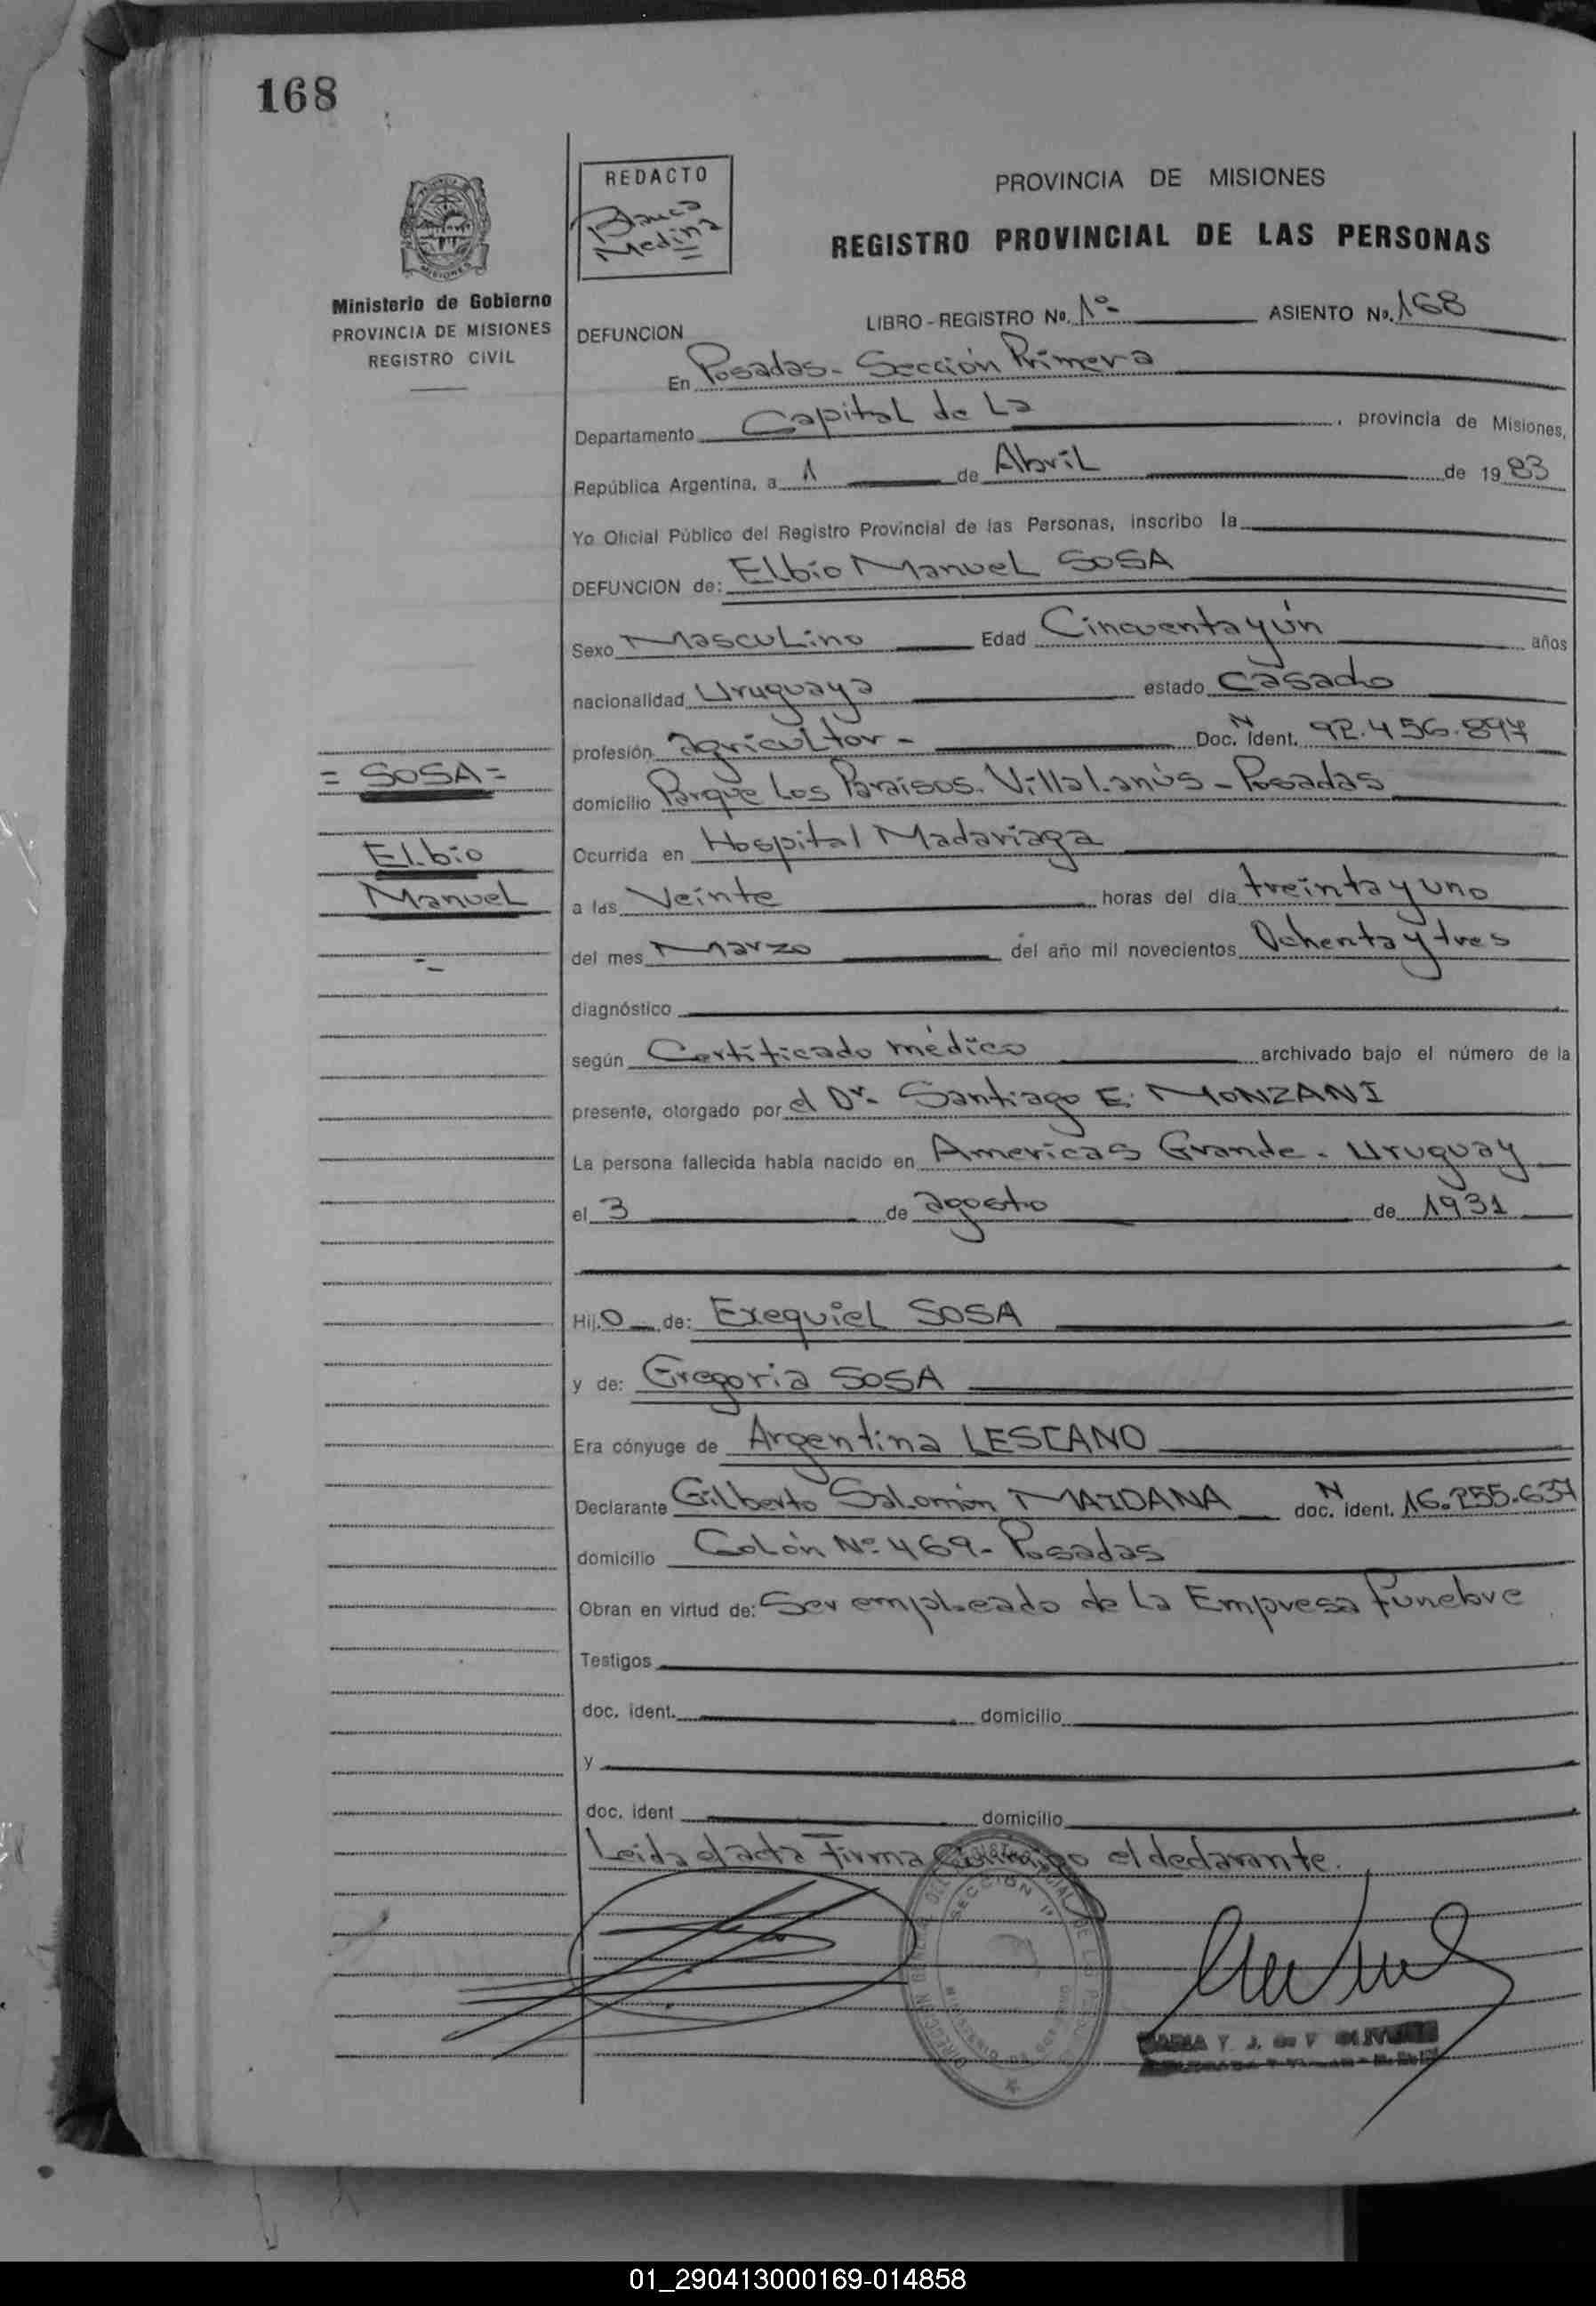 168
REDACTO
Blanca
Medina
PROVINCIA DE MISIONES
REGISTRO PROVINCIAL DE LAS PERSONAS
Ministerio de Gobierno
PROVINCIA DE MISIONES
REGISTRO CIVIL
DEFUNCION LIBRO - REGISTRO No. 1º- ASIENTO No. 168
En Posadas - Sección Primera
Departamento Capital de La , provincia de Misiones,
República Argentina, a 1 de Abril de 1983
Yo Oficial Público del Registro Provincial de las Personas, inscribo la
DEFUNCION de: Elbio Manuel SOSA
Sexo Masculino Edad Cincuenta y ún años
nacionalidad Uruguaya estado Casado
profesión agricultor - Doc. N Ident. 92.456.897
= SOSA =
domicilio Parque Los Paraisos - Villa Lanús - Posadas
Elbio
Ocurrida en Hospital Madariaga
Manuel
a las Veinte horas del día treinta y uno
del mes Marzo del año mil novecientos Ochenta y tres
diagnóstico
según Certificado médico archivado bajo el número de la
presente, otorgado por el Dr. Santiago E. MONZANI
La persona fallecida había nacido en Americas Grande - Uruguay
el 3 de agosto de 1931
Hijo de: Exequiel SOSA
y de: Gregoria SOSA
Era cónyuge de Argentina LESCANO
Declarante Gilberto Salomón MAIDANA doc. N ident. 16.255.637
domicilio Colón Nº 469 - Posadas
Obran en virtud de: Ser empleado de la Empresa fúnebre
Testigos
doc. ident. domicilio
y
doc. ident domicilio
Leida el acta Firma Conmigo el declarante.
SECCION 1ª
01_290413000169-014858